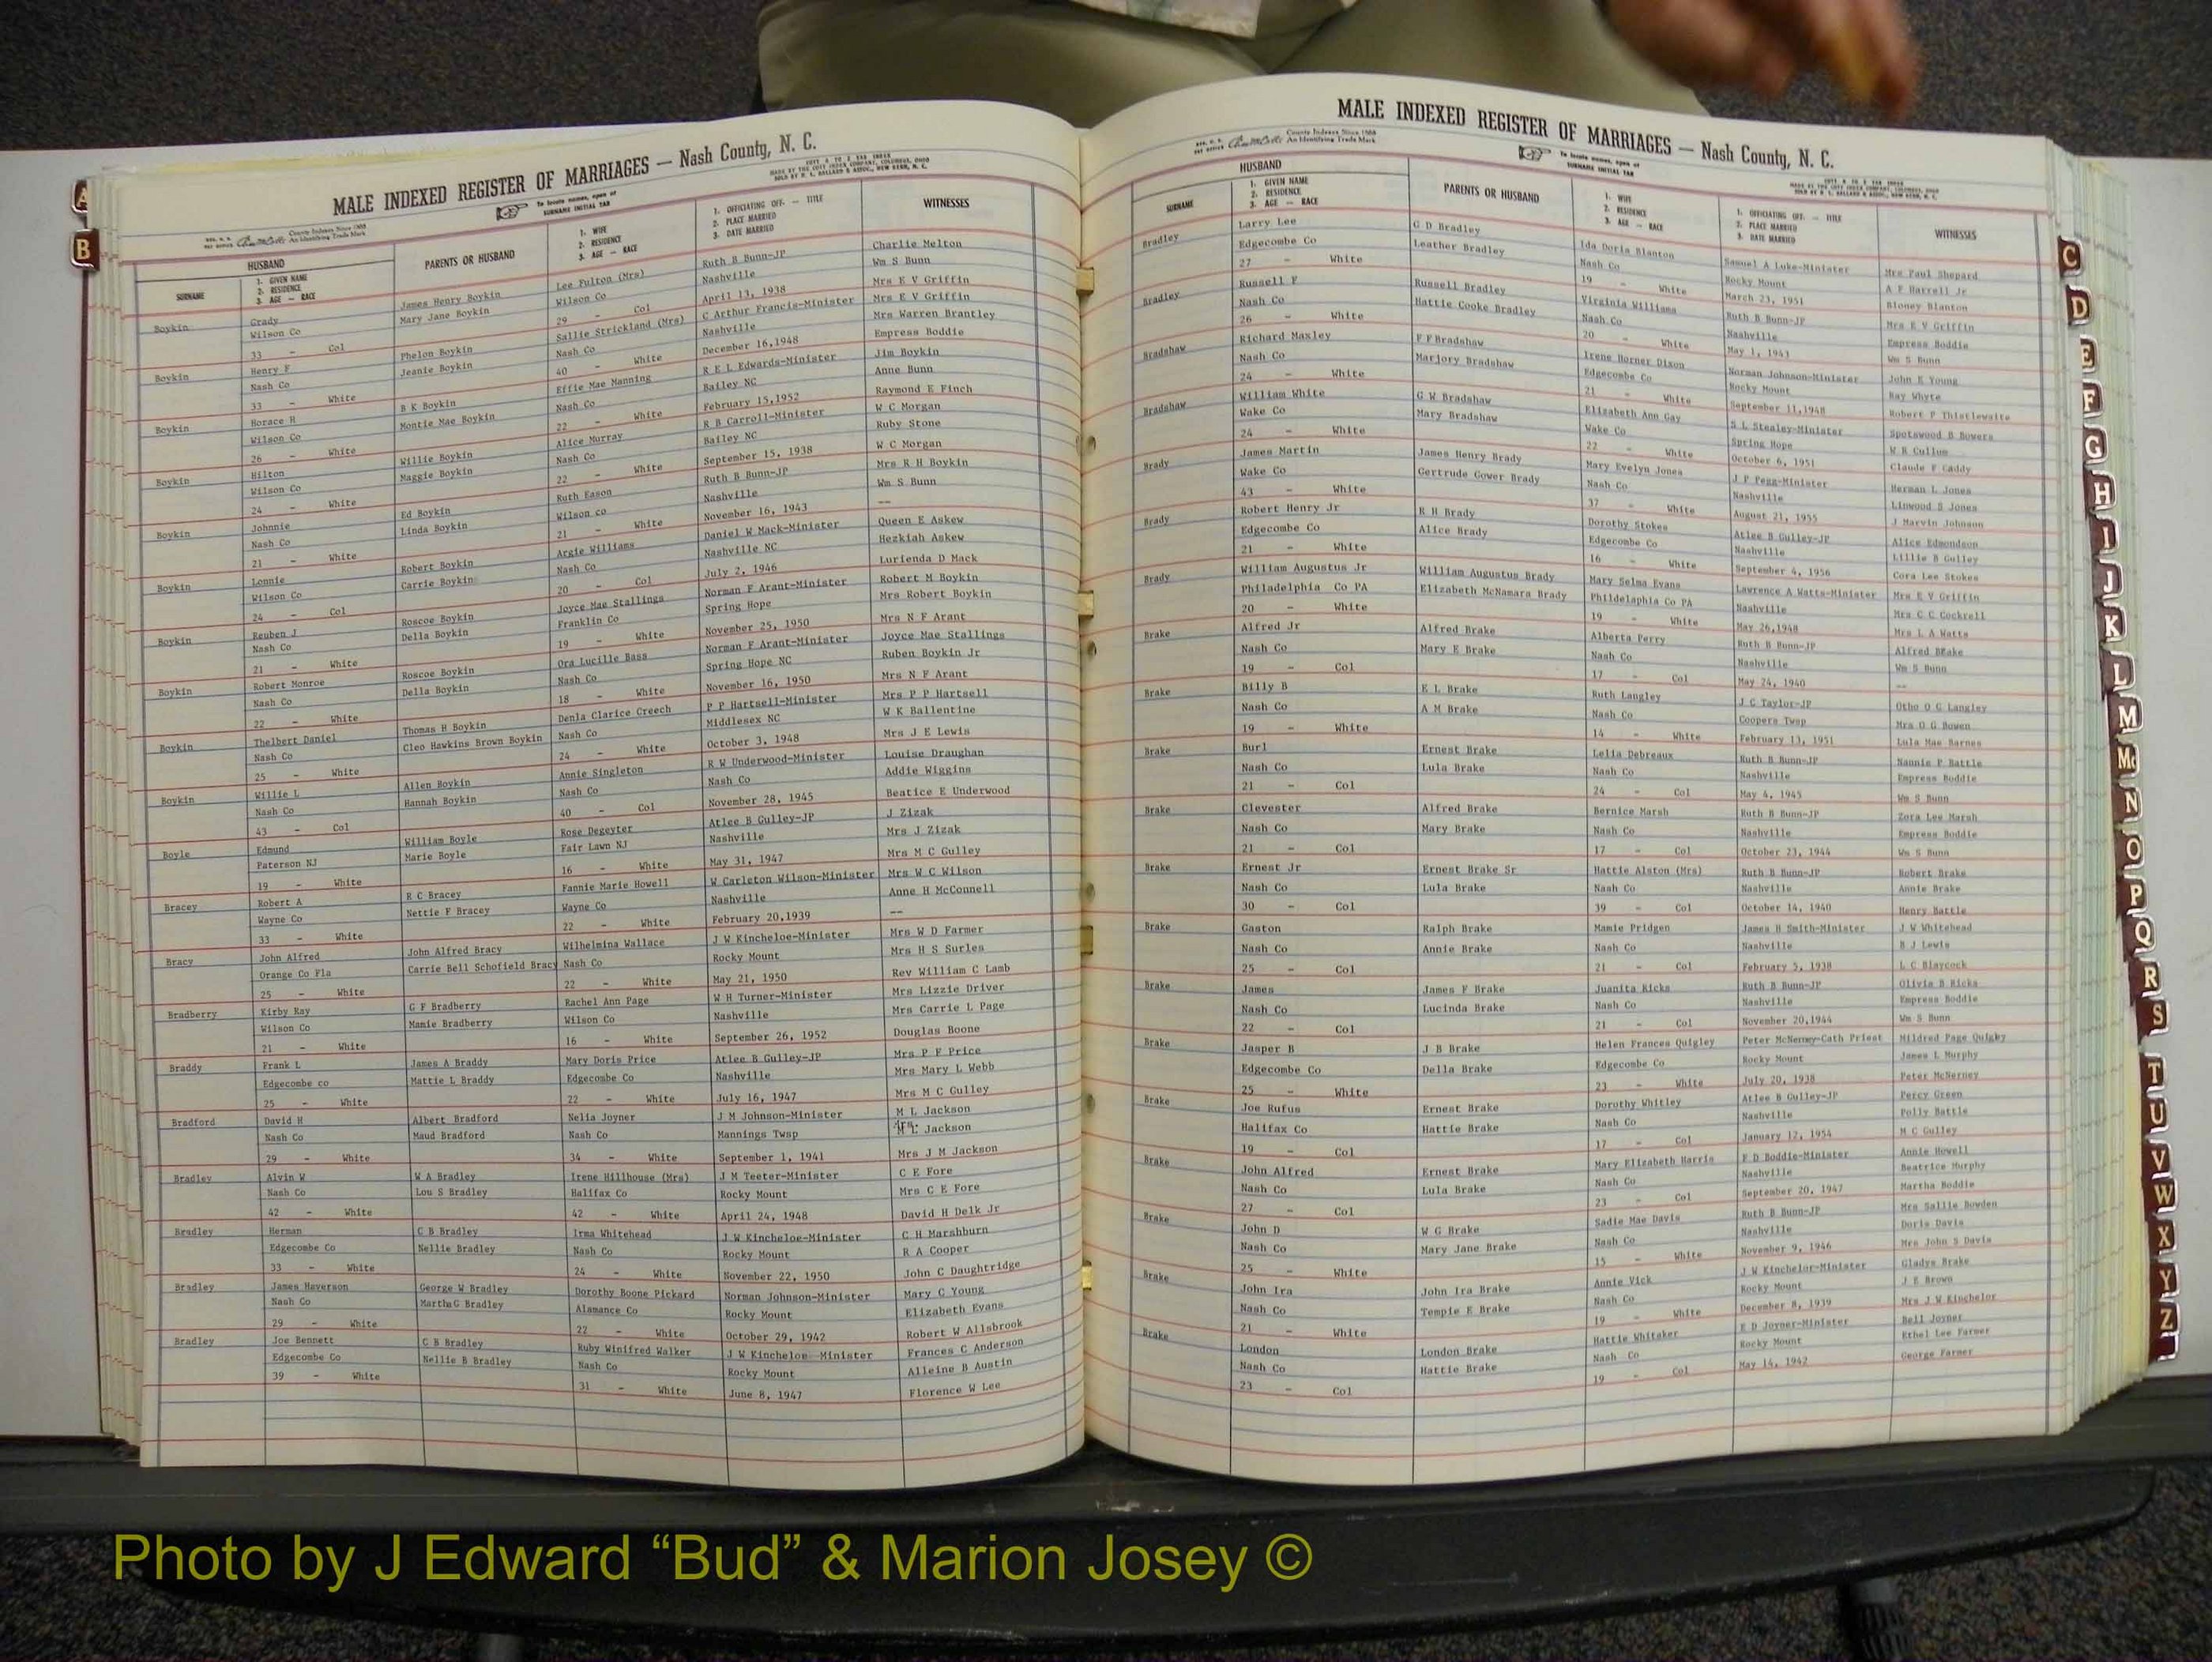 MALE INDEXED REGISTER OF MARRIAGES — Nash County, N. C.
To locate names, open at
SURNAME INITIAL TAB
County Indexes Since 1888
An Identifying Trade Mark
HUSBAND
SURNAME
1. GIVEN NAME
2. RESIDENCE
3. AGE — RACE
PARENTS OR HUSBAND
1. WIFE
2. RESIDENCE
3. AGE — RACE
1. OFFICIATING OFF. — TITLE
2. PLACE MARRIED
3. DATE MARRIED
WITNESSES
Boykin Grady James Henry Boykin Lee Fulton (Mrs) Ruth B Bunn-JP Charlie Melton
Wilson Co Mary Jane Boykin Wilson Co Nashville Wm S Bunn
33 - Col 29 - Col April 13, 1938 Mrs E V Griffin
Boykin Henry F Phelon Boykin Sallie Strickland (Mrs) C Arthur Francis-Minister Mrs E V Griffin
Nash Co Jeanie Boykin Nash Co Nashville Mrs Warren Brantley
33 - White 40 - White December 16,1948 Empress Boddie
Boykin Horace H B K Boykin Effie Mae Manning R E L Edwards-Minister Jim Boykin
Wilson Co Montie Mae Boykin Nash Co Bailey NC Anne Bunn
26 - White 22 - White February 15,1952 Raymond E Finch
Boykin Hilton Willie Boykin Alice Murray R B Carroll-Minister W C Morgan
Wilson Co Maggie Boykin Nash Co Bailey NC Ruby Stone
24 - White 22 - White September 15, 1938 W C Morgan
Boykin Johnnie Ed Boykin Ruth Eason Ruth B Bunn-JP Mrs R H Boykin
Nash Co Linda Boykin Wilson co Nashville Wm S Bunn
21 - White 21 - White November 16, 1943 --
Boykin Lonnie Robert Boykin Argie Williams Daniel W Mack-Minister Queen E Askew
Wilson Co Carrie Boykin Nash Co Nashville NC Hezkiah Askew
24 - Col 20 - Col July 2, 1946 Lurienda D Mack
Boykin Reuben J Roscoe Boykin Joyce Mae Stallings Norman F Arant-Minister Robert M Boykin
Nash Co Della Boykin Franklin Co Spring Hope Mrs Robert Boykin
21 - White 19 - White November 25, 1950 Mrs N F Arant
Boykin Robert Monroe Roscoe Boykin Ora Lucille Bass Norman F Arant-Minister Joyce Mae Stallings
Nash Co Della Boykin Nash Co Spring Hope NC Ruben Boykin Jr
22 - White 18 - White November 16, 1950 Mrs N F Arant
Boykin Thelbert Daniel Thomas H Boykin Denla Clarice Creech P P Hartsell-Minister Mrs P P Hartsell
Nash Co Cleo Hawkins Brown Boykin Nash Co Middlesex NC W K Ballentine
25 - White 24 - White October 3, 1948 Mrs J E Lewis
Boykin Willie L Allen Boykin Annie Singleton R W Underwood-Minister Louise Draughan
Nash Co Hannah Boykin Nash Co Nash Co Addie Wiggins
43 - Col 40 - Col November 28, 1945 Beatice E Underwood
Boyle Edmund William Boyle Rose Degeyter Atlee B Gulley-JP J Zizak
Paterson NJ Marie Boyle Fair Lawn NJ Nashville Mrs J Zizak
19 - White 16 - White May 31, 1947 Mrs M C Gulley
Bracey Robert A R C Bracey Fannie Marie Howell W Carleton Wilson-Minister Mrs W C Wilson
Wayne Co Nettie F Bracey Wayne Co Nashville Anne H McConnell
33 - White 22 - White February 20,1939 --
Bracy John Alfred John Alfred Bracy Wilhelmina Wallace J W Kincheloe-Minister Mrs W D Farmer
Orange Co Fla Carrie Bell Schofield Bracy Nash Co Rocky Mount Mrs H S Surles
25 - White 22 - White May 21, 1950 Rev William C Lamb
Bradberry Kirby Ray G F Bradberry Rachel Ann Page W H Turner-Minister Mrs Lizzie Driver
Wilson Co Mamie Bradberry Wilson Co Nashville Mrs Carrie L Page
21 - White 16 - White September 26, 1952 Douglas Boone
Braddy Frank L James A Braddy Mary Doris Price Atlee B Gulley-JP Mrs P F Price
Edgecombe co Mattie L Braddy Edgecombe Co Nashville Mrs Mary L Webb
25 - White 22 - White July 16, 1947 Mrs M C Gulley
Bradford David H Albert Bradford Nelia Joyner J M Johnson-Minister M L Jackson
Nash Co Maud Bradford Nash Co Mannings Twsp Jackson
29 - White 34 - White September 1, 1941 Mrs J M Jackson
Bradley Alvin W W A Bradley Irene Hillhouse (Mrs) J M Teeter-Minister C E Fore
Nash Co Lou S Bradley Halifax Co Rocky Mount Mrs C E Fore
42 - White 42 - White April 24, 1948 David H Delk Jr
Bradley Herman C B Bradley Irma Whitehead J W Kincheloe-Minister C H Marshburn
Edgecombe Co Nellie Bradley Nash Co Rocky Mount R A Cooper
33 - White 24 - White November 22, 1950 John C Daughtridge
Bradley James Haverson George W Bradley Dorothy Boone Pickard Norman Johnson-Minister Mary C Young
Nash Co Martha G Bradley Alamance Co Rocky Mount Elizabeth Evans
29 - White 22 - White October 29, 1942 Robert W Allsbrook
Bradley Joe Bennett C B Bradley Ruby Winifred Walker J W Kincheloe Minister Frances C Anderson
Edgecombe Co Nellie B Bradley Nash Co Rocky Mount Alleine B Austin
39 - White 31 - White June 8, 1947 Florence W Lee
MALE INDEXED REGISTER OF MARRIAGES — Nash County, N. C.
County Indexes Since 1888
An Identifying Trade Mark
To locate names, open at
SURNAME INITIAL TAB
HUSBAND
SURNAME
1. GIVEN NAME
2. RESIDENCE
3. AGE — RACE
PARENTS OR HUSBAND
1. WIFE
2. RESIDENCE
3. AGE — RACE
1. OFFICIATING OFF. — TITLE
2. PLACE MARRIED
3. DATE MARRIED
WITNESSES
Bradley Larry Lee G D Bradley Ida Doris Blanton Samuel A Luke-Minister Mrs Paul Shepard
Edgecombe Co Leather Bradley Nash Co Rocky Mount A P Harrell Jr
27 - White 19 - White March 23, 1951 Bloney Blanton
Bradley Russell F Russell Bradley Virginia Williams Ruth B Bunn-JP Mrs E V Griffin
Nash Co Hattie Cooke Bradley Nash Co Nashville Empress Boddie
26 - White 20 - White May 1, 1943 Wm S Bunn
Bradshaw Richard Maxley F F Bradshaw Irene Horner Dixon Norman Johnson-Minister John E Young
Nash Co Marjory Bradshaw Edgecombe Co Rocky Mount Ray Whyte
24 - White 21 - White September 11,1948 Robert P Thistlewaite
Bradshaw William White G W Bradshaw Elizabeth Ann Gay S L Stealey-Minister Spotswood B Bowers
Wake Co Mary Bradshaw Wake Co Spring Hope W R Cullum
24 - White 22 - White October 6, 1951 Claude F Gaddy
Brady James Martin James Henry Brady Mary Evelyn Jones J P Pegg-Minister Herman L Jones
Wake Co Gertrude Gower Brady Nash Co Nashville Linwood S Jones
43 - White 37 - White August 21, 1955 J Marvin Johnson
Brady Robert Henry Jr R H Brady Dorothy Stokes Atlee B Gulley-JP Alice Edmondson
Edgecombe Co Alice Brady Edgecombe Co Nashville Lillie B Gulley
21 - White 16 - White September 4, 1956 Cora Lee Stokes
Brady William Augustus Jr William Augustus Brady Mary Selma Evans Lawrence A Watts-Minister Mrs E V Griffin
Philadelphia Co PA Elizabeth McNamara Brady Phildelaphia Co PA Nashville Mrs C C Cockrell
20 - White 19 - White May 26,1948 Mrs L A Watts
Brake Alfred Jr Alfred Brake Alberta Perry Ruth B Bunn-JP Alfred BRake
Nash Co Mary E Brake Nash Co Nashville Wm S Bunn
19 - Col 17 - Col May 24, 1940 --
Brake Billy B E L Brake Ruth Langley J C Taylor-JP Otho O G Langley
Nash Co A M Brake Nash Co Coopers Twsp Mrs O G Bowen
19 - White 14 - White February 13, 1951 Lula Mae Barnes
Brake Burl Ernest Brake Lelia Debreaux Ruth B Bunn-JP Nannie P Battle
Nash Co Lula Brake Nash Co Nashville Empress Boddie
21 - Col 24 - Col May 4, 1945 Wm S Bunn
Brake Clevester Alfred Brake Bernice Marsh Ruth B Bunn-JP Zora Lee Marsh
Nash Co Mary Brake Nash Co Nashville Empress Boddie
21 - Col 17 - Col October 23, 1944 Wm S Bunn
Brake Ernest Jr Ernest Brake Sr Hattie Alston (Mrs) Ruth B Bunn-JP Robert Brake
Nash Co Lula Brake Nash Co Nashville Annie Brake
30 - Col 39 - Col October 14, 1940 Henry Battle
Brake Gaston Ralph Brake Mamie Pridgen James H Smith-Minister J W Whitehead
Nash Co Annie Brake Nash Co Nashville B J Lewis
25 - Col 21 - Col February 5, 1938 L C Blaycock
Brake James James F Brake Juanita Ricks Ruth B Bunn-JP Olivia B Ricks
Nash Co Lucinda Brake Nash Co Nashville Empress Boddie
22 - Col 21 - Col November 20,1944 Wm S Bunn
Brake Jasper B J B Brake Helen Frances Quigley Peter McNerney-Cath Priest Mildred Page Quigley
Edgecombe Co Della Brake Edgecombe Co Rocky Mount James L Murphy
25 - White 23 - White July 20, 1938 Peter McNerney
Brake Joe Rufus Ernest Brake Dorothy Whitley Atlee B Gulley-JP Percy Green
Halifax Co Hattie Brake Nash Co Nashville Polly Battle
19 - Col 17 - Col January 12, 1954 M C Gulley
Brake John Alfred Ernest Brake Mary Elizabeth Harris F D Boddie-Minister Annie Howell
Nash Co Lula Brake Nash Co Nashville Beatrice Murphy
27 - Col 23 - Col September 20, 1947 Martha Boddie
Brake John D W G Brake Sadie Mae Davis Ruth B Bunn-JP Mrs Sallie Bowden
Nash Co Mary Jane Brake Nash Co Nashville Doris Davis
25 - White 15 - White November 9, 1946 Mrs John S Davis
Brake John Ira John Ira Brake Annie Vick J W Kinchelor-Minister Gladys Brake
Nash Co Tempie E Brake Nash Co Rocky Mount J E Brown
21 - White 19 - White December 8, 1939 Mrs J W Kinchelor
Brake London London Brake Hattie Whitaker E D Joyner-Minister Bell Joyner
Nash Co Hattie Brake Nash Co Rocky Mount Ethel Lee Farmer
23 - Col 19 - Col May 14, 1942 George Farmer
A
B
C
D
E
F
G
H
I
J
K
L
M
Mc
N
O
P
Q
R
S
T
U
V
W
X
Y
Z
Photo by J Edward “Bud” & Marion Josey ©